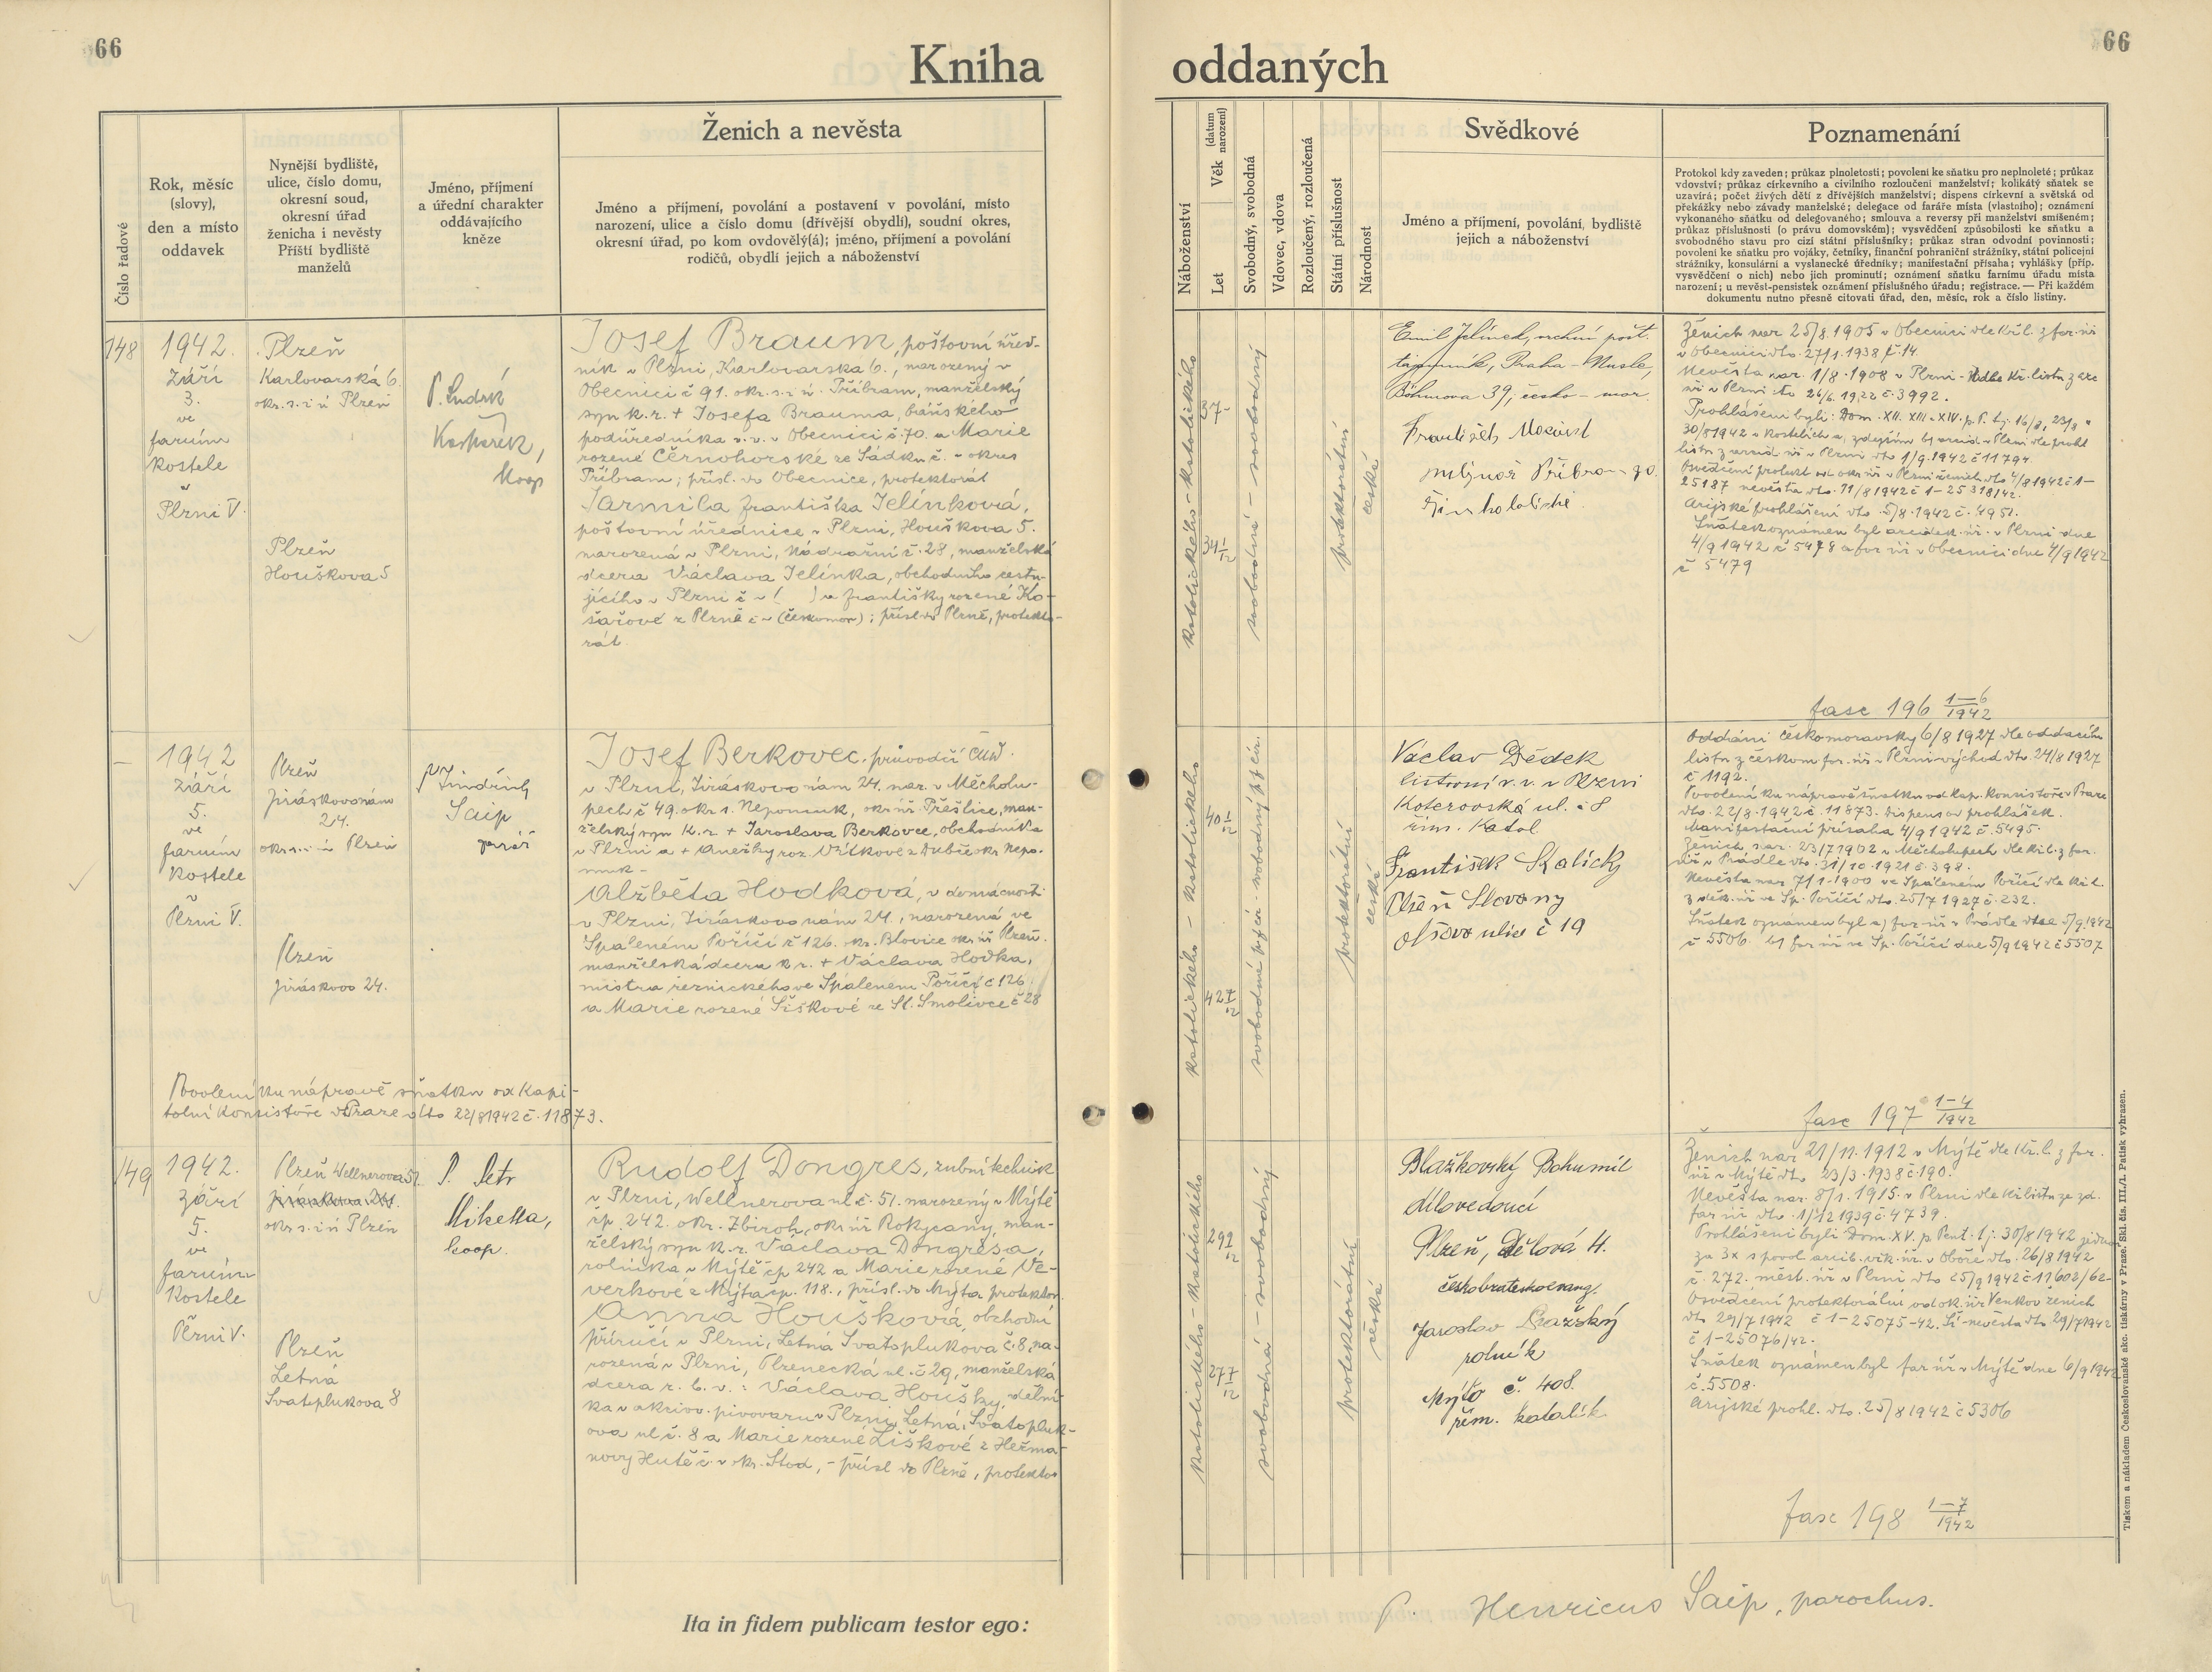 66
Kniha
oddaných
66
Číslo řadové
Rok, měsíc
(slovy),
den a místo
oddavek
Nynější bydliště,
ulice, číslo domu,
okresní soud,
okresní úřad
ženicha i nevěsty
Příští bydliště
manželů
Jméno, příjmení
a úřední charakter
oddávajícího
kněze
Ženich a nevěsta
Jméno a příjmení, povolání a postavení v povolání, místo
narození, ulice a číslo domu (dřívější obydlí), soudní okres,
okresní úřad, po kom ovdovělý(á); jméno, příjmení a povolání
rodičů, obydlí jejich a náboženství
Náboženství
Let
Věk (datum narození)
Svobodný, svobodná
Vdovec, vdova
Rozloučený, rozloučená
Státní příslušnost
Národnost
Svědkové
Jméno a příjmení, povolání, bydliště
jejich a náboženství
Poznamenání
Protokol kdy zaveden; průkaz plnoletosti; povolení ke sňatku pro neplnoleté; průkaz
vdovství; průkaz církevního a civilního rozloučení manželství; kolikátý sňatek se
uzavírá; počet živých dětí z dřívějších manželství; dispens církevní a světská od
překážky nebo závady manželské; delegace od faráře místa (vlastního); oznámení
vykonaného sňatku od delegovaného; smlouva a reversy při manželství smíšeném;
průkaz příslušnosti (o právu domovském); vysvědčení způsobilosti ke sňatku a
svobodného stavu pro cizí státní příslušníky; průkaz stran odvodní povinnosti;
povolení ke sňatku pro vojáky, četníky, finanční pohraniční strážníky, státní policejní
strážníky, konsulární a vyslanecké úředníky; manifestační přísaha; vyhlášky (příp.
vysvědčení o nich) nebo jich prominutí; oznámení sňatku farnímu úřadu místa
narození; u nevěst-pensistek oznámení příslušného úřadu; registrace. — Při každém
dokumentu nutno přesně citovati úřad, den, měsíc, rok a číslo listiny.
148
1942.
Září
3.
ve
farním
kostele
v
Plzni V.
Plzeň
Karlovarská 6
okr. s. i ú Plzeň
Plzeň
Houškova 5
P. Ludvík
Kašpárek,
koop
Josef Braum, poštovní úřed-
ník v Plzni, Karlovarska 6., narozený v
Obecnici č 91. okr. s. i ú. Příbram, manželský
syn k. r. + Josefa Brauma, báňského
podúředníka v. v. v Obecnici č. 70. a Marie
rozené Černohorské ze Sádku č. - okres
Příbram; přísl. do Obecnice, protektorát
Jarmila Františka Jelínková,
poštovní úřednice v Plzni, Houškova 5.
narozená v Plzni, Nádražní č. 28, manželská
dcera Václava Jelínka, obchodního cestu-
jícího v Plzni č v ( ) a Františky rozené Ko-
šařové z Plzně č v (českomor); přísl do Plzně, protekto-
rát
katolického - katolického
37-
34 1/12
svobodná - svobodný
protektorátní
české
Emil Jelínek, vrchní pošt.
tajemník, Praha - Nusle,
39, česko - mor.
František
mlynář Příbram
Římskokatolické
Ženich nar. 25/8. 1905 v Obecnici dle kř. l. z far. úř
v Obecnici dto. 27/1. 1938 č. 14.
Nevěsta nar. 1/8. 1908 v Plzni - dle kř. listu z arc
úř v Plzni dto 26/6. 1922 č. 3992.
Prohlášení byli: Dom. XII. XIII. XIV. p. P. t. j. 16/8, 23/8 a
30/8 1942 v kostelích a) zdejším b) arcid. v Plzni dle prohl
listu z arcid. úř v Plzni dto 1/9. 1942 č 11794.
Osvědčení protekt od okr. úř v Plzni ženich dto 4/8 1942 č 1-
25187 nevěsta dto. 11/8 1942 č 1-25318/42.
Arijské prohlášení dto. 5/8. 1942 č. 4951.
Sňatek oznámen byl arcidek. úř. v Plzni dne
4/9 1942 č 5478 a far úř v Obecnici dne 4/9 1942
č 5479
fasc 196 1-6/1942
–
1942
Září
5.
ve
farním
kostele
v
Plzni V.
Plzeň
Jiráskovo nám
24.
okr. s. i ú Plzeň
Plzeň
Jiráskovo 24.
P Jindřich
Saip
farář
Josef Berkovec, průvodčí ČMD.
v Plzni, Jiráskovo nám 24. nar. v Měcholu-
pech č 49. okr s. Nepomuk, okr. úř. Přeštice, man-
želský syn k. r. + Jaroslava Berkovce, obchodníka
v Plzni a + Anežky roz. Vítkové z Dubče okr. Nepo-
muk -
Alžběta Hodková, v domácnosti
v Plzni, Jiráskovo nám 24., narozená ve
Spáleném Poříčí č 126. okr. Blovice okr. úř Plzeň.
manželská dcera k r. + Václava Hodka,
mistra řeznického ve Spáleném Poříčí č 126
a Marie rozené Šiškové ze St. Smolivce č 28
Povolení ku nápravě sňatku od Kapi-
tolní konsistoře v Praze dto 22/8 1942 č. 11873.
katolického - katolického
40 1/12
42 7/12
protektorátní
české
Václav Dědek
listonoš v. v. v Plzni
Koterovská ul. č 8
řím. Katol.
František Skalický
Plzeň Slovany
Olšová ulice č 19
Oddáni českomoravsky 6/8 1927 dle oddacího
listu z českom far. úř. v Plzni-východ dto. 24/8 1927
č 1192.
Povolení ku nápravě sňatku od kap. konsistoře v Praze
dto. 22/8. 1942 č. 11873. dispens od prohlášek.
Manifestační přísaha 4/9 1942 č. 5495.
Ženich nar. 23/7 1902 v Měcholupech dle kř. l. z far.
úř v Prádle dto. 31/10. 1921 č. 398.
Nevěsta nar. 7/1. 1900 ve Spáleném Poříčí dle kř l.
z děk. úř ve Sp. Poříčí dto. 25/7 1927 č. 232.
Sňatek oznámen byl a) far úř v Prádle dne 5/9 1942
č 5506. b) far úř ve Sp. Poříčí dne 5/9 1942 č 5507
fasc 197 1-4/1942
149
1942.
Září
5.
ve
farním
kostele
v
Plzni V.
Plzeň Wellnerova 51
okr s. i ú Plzeň
Plzeň
Letná
Svatoplukova 8
P. Petr
Miketta,
koop.
Rudolf Dongres, zubní technik
v Plzni, Wellnerova ul č. 51. narozený v Mýtě
čp. 242. okr. Zbiroh, okr úř Rokycany, man-
želský syn k. r. Václava Dongrésa,
rolníka v Mýtě čp. 242 a Marie rozené Ve-
verkové z Mýta čp. 118., přísl. do Mýta protektor.
Anna Houšková, obchodní
příručí v Plzni, Letná Svatoplukova č. 8, na-
rozená v Plzni, Plzenecká ul. č 29, manželská
dcera r. b. v.: Václava Houšky, dělní-
ka v akciov. pivovaru v Plzni, Letná, Svatopluk-
ova ul č. 8 a Marie rozené Liškové z Heřma-
novy Hutě č. v okr. Stod, - přísl do Plzně, protektor
katolického - katolického
29 9/12
27 7/12
svobodná - svobodný
protektorátní
české
Blažkovský Bohumil
dílovedoucí
Plzeň, Dělová 4.
českobratrskoevang.
Jaroslav Pražský
rolník
Mýto č. 408.
řím. katolík
Ženich nar 21/11. 1912 v Mýtě dle kř. l. z far.
úř v Mýtě dto. 23/3. 1938 č. 190.
Nevěsta nar. 8/1. 1915. v Plzni dle kř listu ze zd.
far úř dto. 1/12 1939 č. 4739.
Prohlášeni byli Dom. XV. p Pent. t. j. 30/8 1942 jednou
za 3x s povol. arcib. vik. úř. v Oboře dto. 26/8 1942
č. 272. měst. úř v Plzni dto 25/9 1942 č 11602/62-
Osvědčení protektorátní od ok. úř Venkov ženich
dto 29/7 1942 č 1-25075-42. nevěsta dto 29/7 1942
č 1-25076/42.
Sňatek oznámen byl far úř v Mýtě dne 6/9 1942
č. 5508.
Arijské prohl. dto. 25/8 1942 č 5306
fasc 198 1-7/1942
Ita in fidem publicam testor ego:
P. Henricus Saip, parochus.
Tiskem a nákladem Československé akc. tiskárny v Praze. Skl. čís. III./1. Patisk vyhrazen.